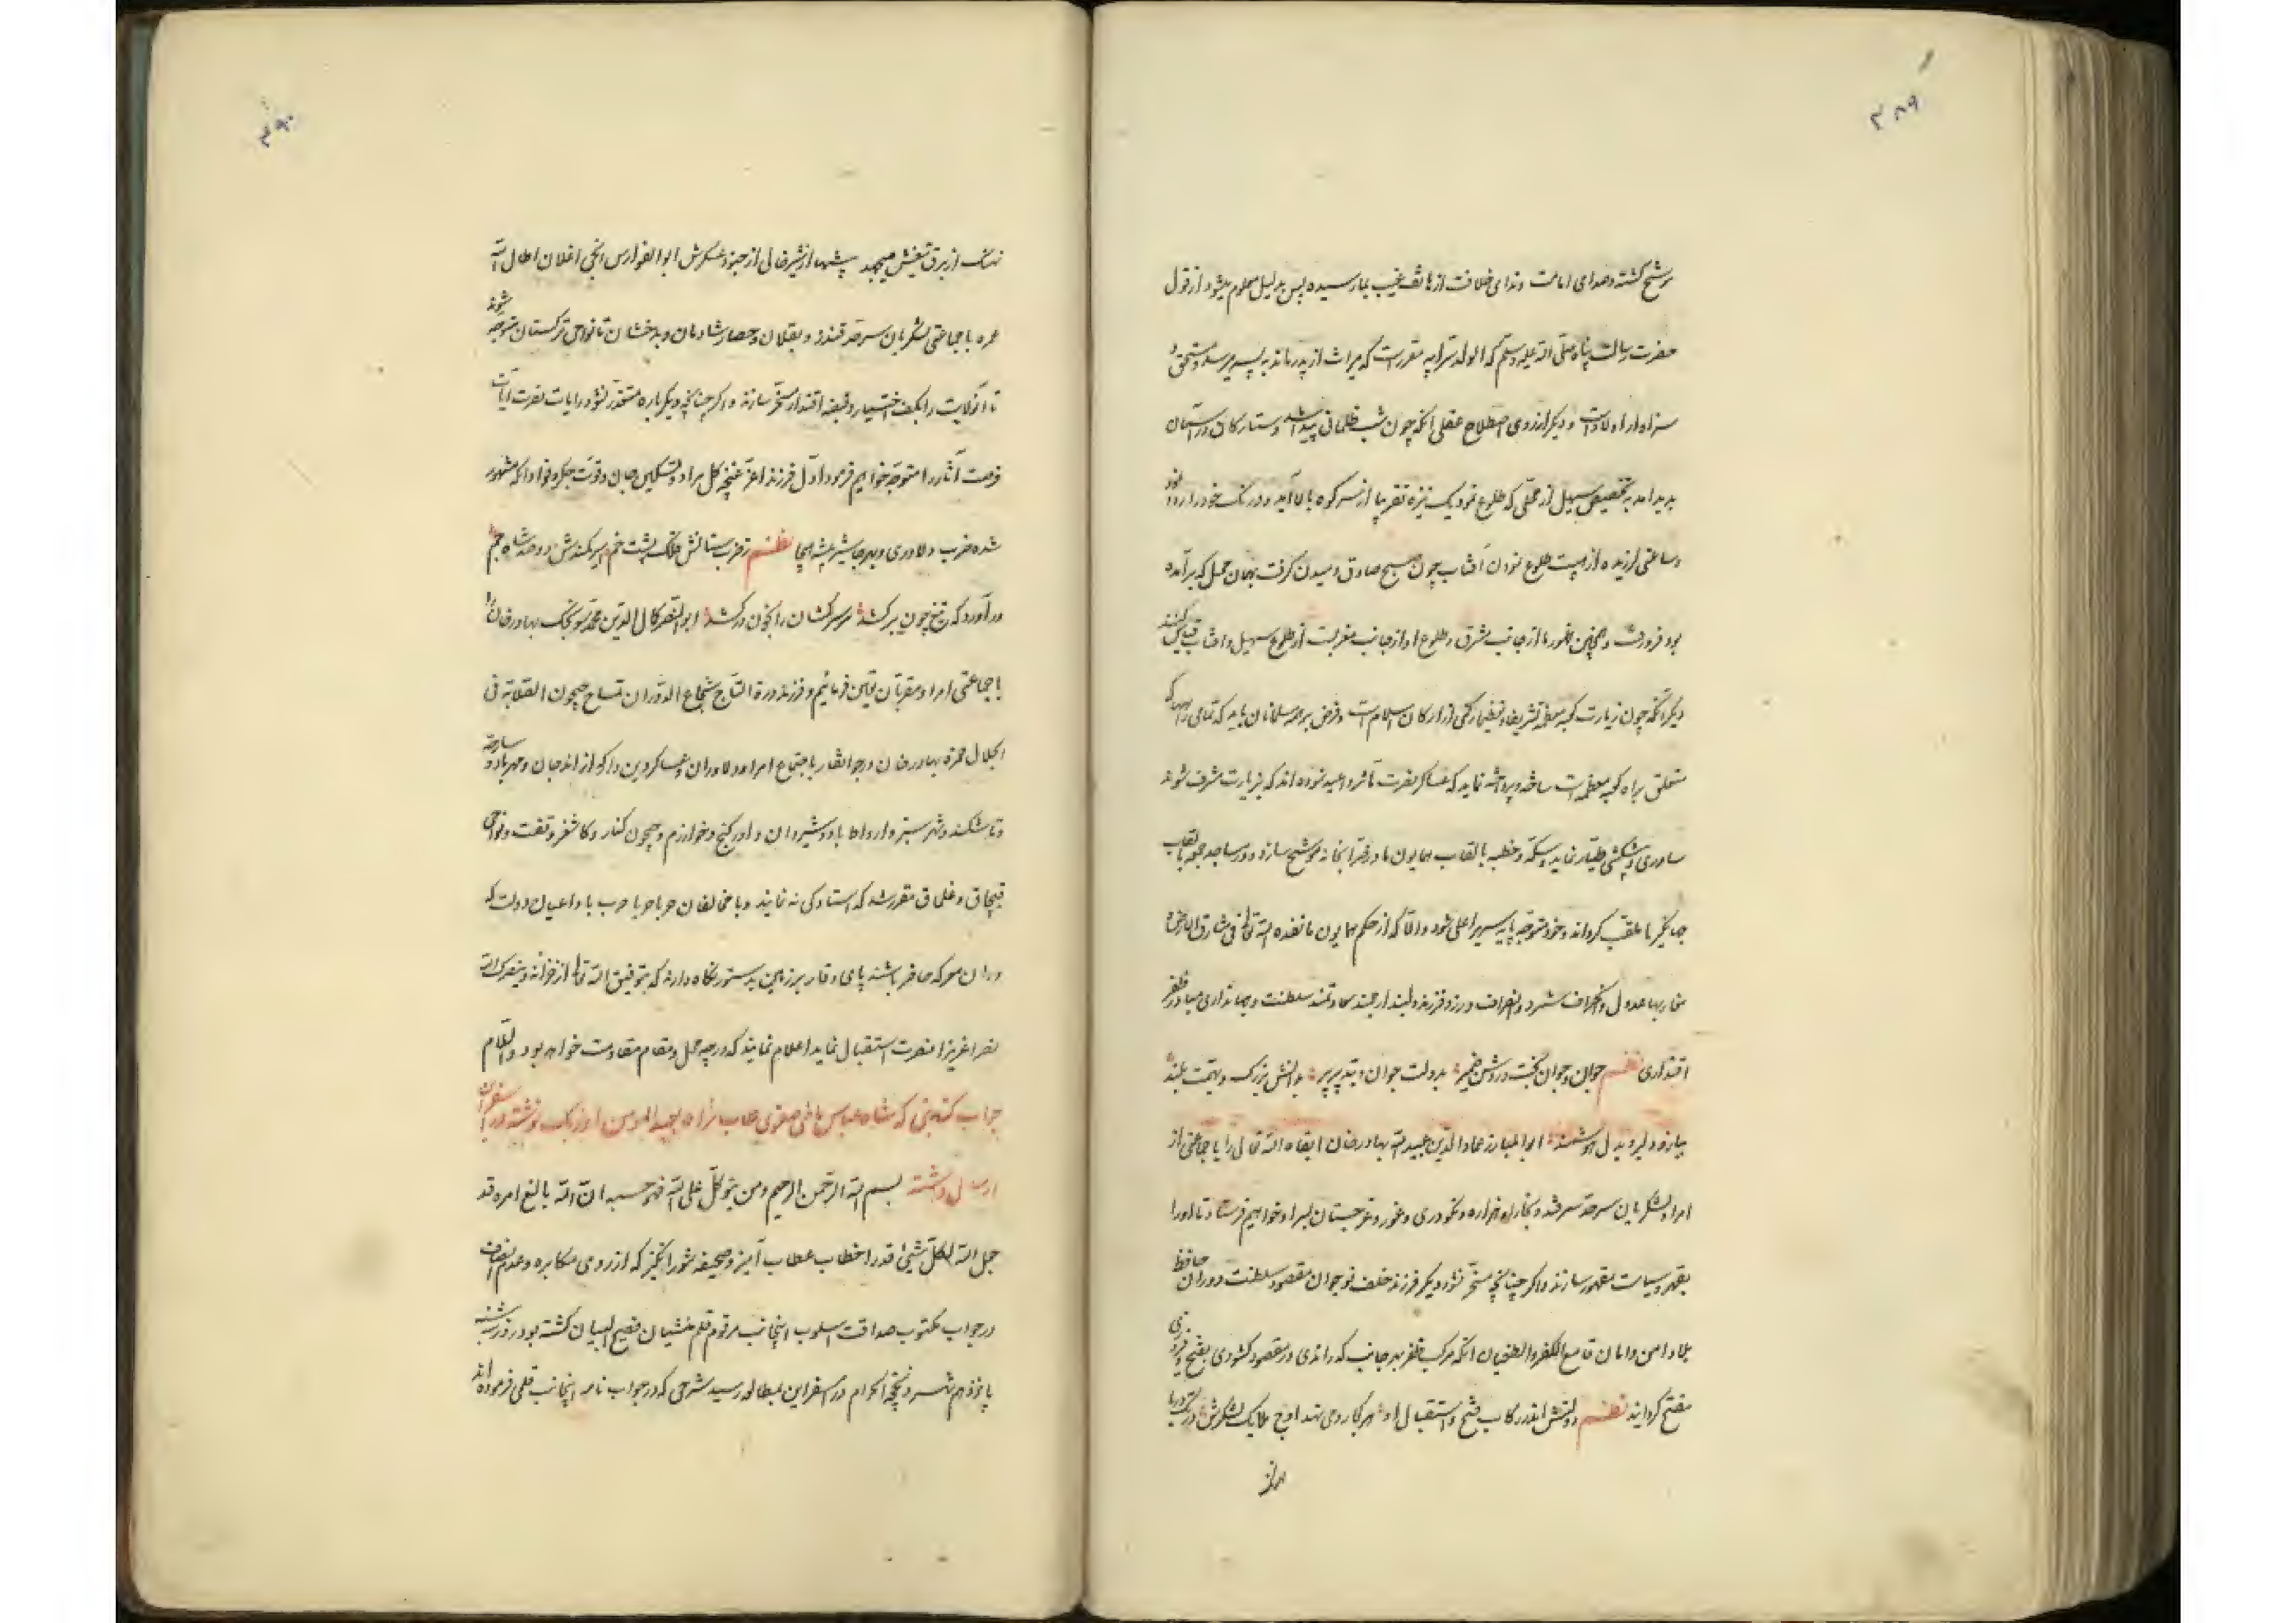 ۲۸۹
مرشح کشته و صدای امامت و ندای خلافت از هاتف غیب بما رسیده پس بدلیل معلوم میشود از قول
حضرت رسالت پناه صلی الله علیه وسلم که الولد سر ابیه مقررست که میراث از پدر ماند به پسر میرسد و مستحق و
سزاوار اولاد است و دیگر از روی اصطلاح عقلی آنکه چون شب ظلمانی پیدا شد و ستارکان در آسمان
پدید آمد به تخصیص سهیل از محلی که طلوع نمود یک نیزه تقریبا از سر کوه بالا آید و درنک خود را
و ساعتی لرزیده از هیبت طلوع نمودن آفتاب چون صبح صادق دمیدن کرفت بهمان محل که برآمده
بود فرو رفت و همچنین ظهور ما از جانب مشرق و طلوع او از جانب مغربست از طلوع سهیل و آفتاب قیاس کنند
دیکر آنکه چون زیارت کعبه معظمه رکنی از ارکان اسلام است و فرض بر همه مسلمانان باید که تمامی
متعلق براه کعبه معظمه است ساخته و پرداخته نماید که عساکر نصرت مآثر داعیه نموده اند که بزیارت مشرف شوند
ساوری و پیشکش طیار نماید و سکه و خطبه بالقاب همایون ما در ضرابخانه موشح سازد و در مساجد جمعه بالقاب
جهانکیر ما ملقب کرداند و خود متوجه پایه سریر اعلی شود و الا که از حکم همایون ما نفذه الله تعالی فی مشارق الارض و
مغاربها عدول و انحراف شمرد و انصراف ورزد فرزند دلبند ارجمند سعادتمند سلطنت و جهانداری مبارز ظفر
اقتداری نظم جوان و جوان بخت و روشن ضمیر بدولت جوان و بتدبیر پیر بدانش بزرک و بهمت بلند
ببازو دلیر و بدل هوشمند ابوالمبارز عماد الدین عبید الله بهادر خان ابقاه الله تعالی را با جماعتی از
امرا و لشکریان سرحد سمرقند و بخارا و هزاره و نکودری و غور و غرجستان بسراو خواهیم فرستاد تا او را
بقهر و سیاست مقهور سازند و اکر چنانچه مسخر نشود دیکر فرزند خلف نوجوان مقصود سلطنت دوران حافظ
بلاد امن و امان قامع الکفر و الطغیان آنکه مرکب ظفر بهر جانب که راندی در مقصود کشودی بفتح و فیروزی
مفتح کردانید نظم دولتش اندر رکاب فتح و استقبال او هر کجا روی نهد افواج ملایک لشکرش
۲۹۰
نهنک از برق تیغش میجهد پشها از شیر خالی از جنود عسکرش ابو الفوارس الجی اغلان اطال الله
عمره با جماعتی لشکریان سرحد قندز و بقلان و حصار شادمان و بدخشان تا نواحی ترکستان متوجه شوند
تا آن ولایت را بکف اختیار و قبضه اقتدار مسخر سازند و اکر چنانچه دیکر باره متعذر نشود رایات نصرت آیات
فرصت آثار را متوجه خواهیم فرمود اول فرزند اعز غنچه کل مراد و تسکین جان و قوت جکر و فواد آنکه مشهور
شده ضرب دلاوری و بهر جا شیر بیشه هیجا نظم ز ضرب سنانش فلک پشت خم اسیر کمندش دو صد شاه جم
درآورد که تیغ چون برکشد سر سرکشان را بخون درکشد ابو النصر کمال الدین محمد سونجک بهادر خان را
با جماعتی امرا و مقربان تعیین فرمائیم و فرزند درة التاج شجاع الدوران تمساح جیحون الصلابة فی
الجلال حمزه بهادر خان در جوانغار با اجتماع امرا و دلاوران و عساکر دین دار که از اندجان و
و تاشکند و شهر سبز و شیروان و اورکنج و خوارزم و جیحون کنار و کاشغر و تفت و نواحی
قبچاق و قلماق مقرر شد که استادکی نه نمایند و با مخالفان حربا حربا حرب با داعیان دولت که
در آن معرکه حاضر باشند پای وقار بر زمین بدستور نکاه دارند که بتوفیق الله تعالی از خزانه و ینصرک الله
نصرا عزیزا نصرت استقبال نماید اعلام نمایند که در چه محل و مقام مقاومت خواهد بود والسلام
جواب کتابتی که شاه عباس ماضی صفوی بعبد المومن اوزبک نوشته در اسفراین
ارسال داشته بسم الله الرحمن الرحیم و من یتوکل علی الله فهو حسبه ان الله بالغ امره قد
جعل الله لکل شیئ قدرا خطاب عطاب آمیز و صحیفه شور انکیز که از روی مکابره و عدم انصاف
در جواب مکتوب صداقت اسلوب اینجانب مرقوم قلم منشیان فصیح البیان کشته بود در روز شنبه
پانزدهم شهر ذیحجة الحرام در اسفراین بمطالعه رسید شرحی که در جواب نامه اینجانب قلمی فرموده اند